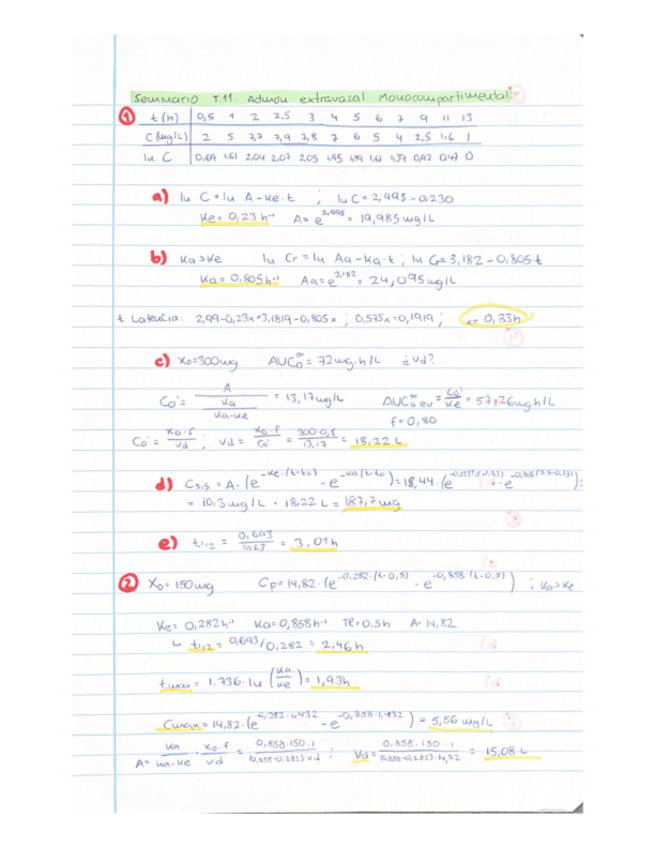 Seminario T.11. Admon extravasal Monocompartimental
① t(h) 0,5 1 2 2,5 3 4 5 6 7 9 11 13
C (mg/L) 2 5 7,7 7,9 7,8 7 6 5 4 2,5 1,6 1
ln C 0,69 1,61 2,04 2,07 2,05 1,95 1,79 1,61 1,39 0,92 0,47 0
a) ln C = ln A - Ke·t ; ln C = 2,995 - 0,230
Ke = 0,23 h⁻¹ A = e^2,995 = 19,985 mg/L
b) Ka > Ke ln Cr = ln Aa - Ka·t ; ln Cr = 3,182 - 0,805t
Ka = 0,805 h⁻¹ Aa = e^3,182 = 24,095 mg/L
t Latencia: 2,99 - 0,23x = 3,1819 - 0,805x ; 0,575x = 0,1919 ; x = 0,33h
c) X₀ = 300mg AUC₀^∞ = 72mg·h/L ¿Vd?
C₀' = A / (Ka / (Ka-Ke)) = 13,17mg/L AUC₀^∞ ev = C₀' / Ke = 57,26mg h/L
f = 0,80
C₀' = X₀·f / Vd ; Vd = X₀·f / C₀' = 300 0,8 / 13,17 = 18,22 L
d) C₃,₅ = A·(e^-Ke·(t-t₀) - e^-Ka(t-t₀)) = 18,44·(e
= 10,3 mg/L · 18,22 L = 187,7mg
e) t₁/₂ = 0,693 / 0,23 = 3,01h
② X₀ = 150mg Cp = 14,82·(e^-0,282·(t-0,5) - e^-0,858·(t-0,5)) ; Ka > Ke
Ke = 0,282h⁻¹ Ka = 0,858h⁻¹ Tl = 0,5h A = 14,82
↳ t₁/₂ = 0,693/0,282 = 2,46h
tmax = 1,736·ln (Ka / Ke) = 1,93h
Cmax = 14,82·(e^-0,282·1,432 - e^-0,858·1,432) = 5,56 mg/L
A = Ka / (Ka-Ke) · X₀·f / Vd = 0,858·150·1 / (0,858-0,282)·Vd ; Vd = 0,858·150·1 / (0,858-0,282)·14,82 = 15,08 L